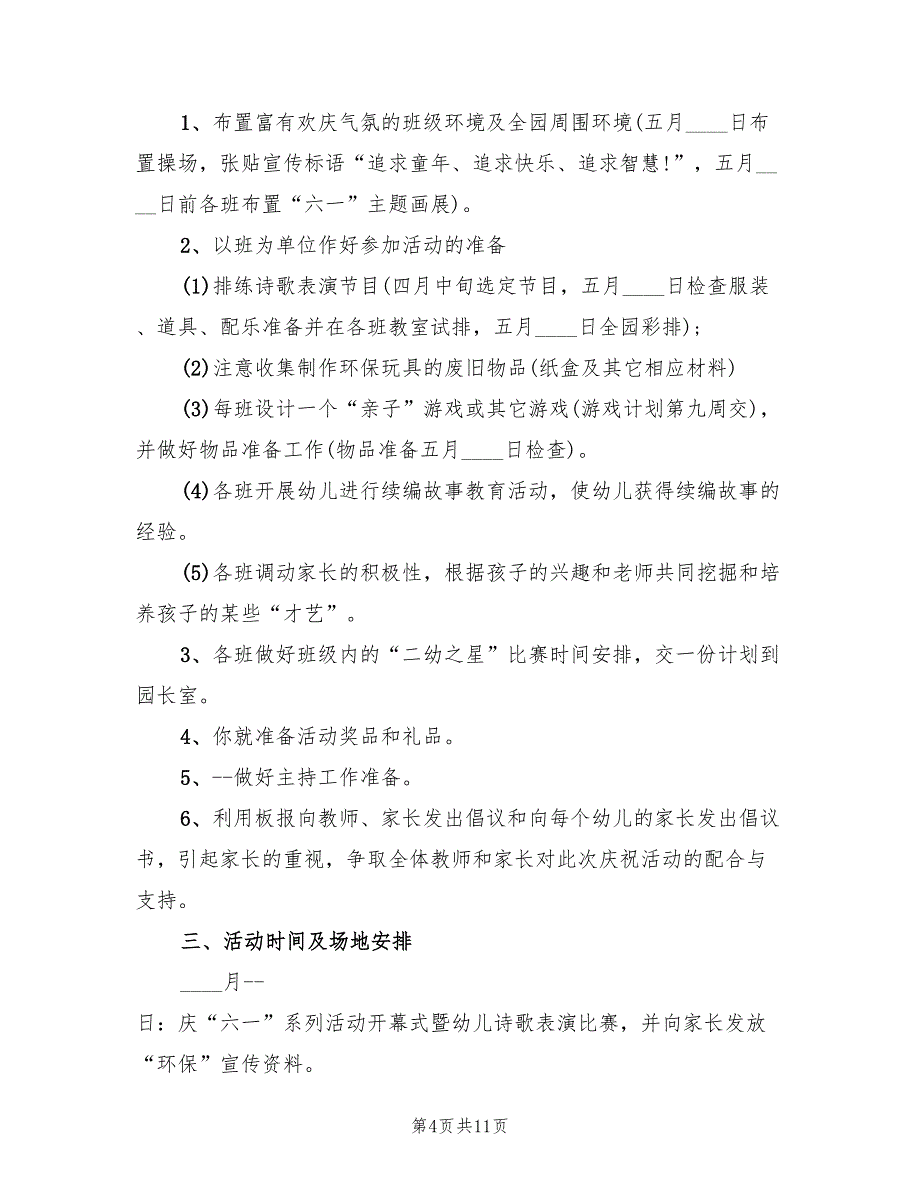 1、布置富有欢庆气氛的班级环境及全园周围环境(五月____日布
置操场，张贴宣传标语“追求童年、追求快乐、追求智慧!”，五月__
__日前各班布置“六一”主题画展)。
2、以班为单位作好参加活动的准备
(1)排练诗歌表演节目(四月中旬选定节目，五月____日检查服装
、道具、配乐准备并在各班教室试排，五月____日全园彩排);
(2)注意收集制作环保玩具的废旧物品(纸盒及其它相应材料)
(3)每班设计一个“亲子”游戏或其它游戏(游戏计划第九周交)，
并做好物品准备工作(物品准备五月____日检查)。
(4)各班开展幼儿进行续编故事教育活动，使幼儿获得续编故事的
经验。
(5)各班调动家长的积极性，根据孩子的兴趣和老师共同挖掘和培
养孩子的某些“才艺”。
3、各班做好班级内的“二幼之星”比赛时间安排，交一份计划到
园长室。
4、你就准备活动奖品和礼品。
5、--做好主持工作准备。
6、利用板报向教师、家长发出倡议和向每个幼儿的家长发出倡议
书，引起家长的重视，争取全体教师和家长对此次庆祝活动的配合与
支持。
三、活动时间及场地安排
____月--
日：庆“六一”系列活动开幕式暨幼儿诗歌表演比赛，并向家长发放
“环保”宣传资料。
第4页共11页